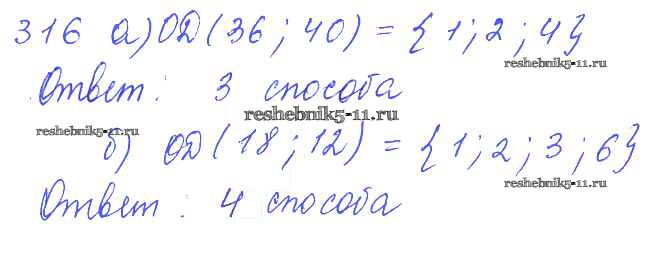 316 а) ОД (36 ; 40) = { 1 ; 2 ; 4 }
reshebnik5-11.ru
Ответ: 3 способа
reshebnik5-11.ru
reshebnik5-11.ru
б) ОД (18 ; 12) = { 1 ; 2 ; 3 ; 6 }
reshebnik5-11.ru
Ответ : 4 способа